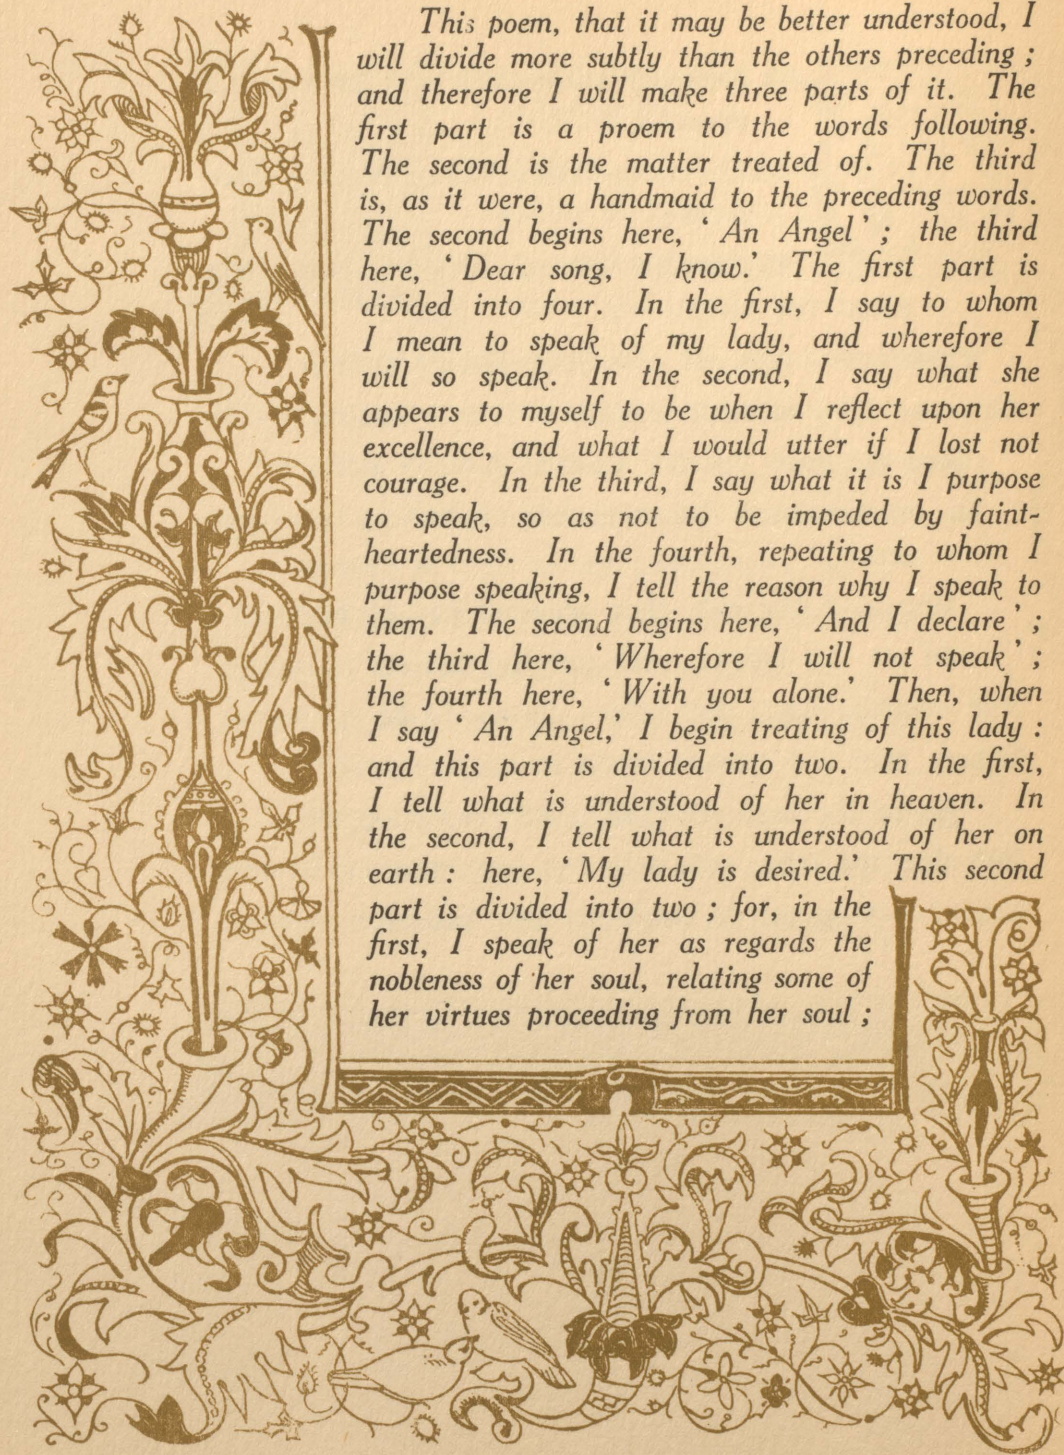 This poem, that it may be better understood, I
will divide more subtly than the others preceding ;
and therefore I will make three parts of it. The
first part is a proem to the words following.
The second is the matter treated of. The third
is, as it were, a handmaid to the preceding words.
The second begins here, ‘ An Angel ’ ; the third
here, ‘ Dear song, I know.’ The first part is
divided into four. In the first, I say to whom
I mean to speak of my lady, and wherefore I
will so speak. In the second, I say what she
appears to myself to be when I reflect upon her
excellence, and what I would utter if I lost not
courage. In the third, I say what it is I purpose
to speak, so as not to be impeded by faint-
heartedness. In the fourth, repeating to whom I
purpose speaking, I tell the reason why I speak to
them. The second begins here, ‘ And I declare ’ ;
the third here, ‘ Wherefore I will not speak ’ ;
the fourth here, ‘ With you alone.’ Then, when
I say ‘ An Angel,’ I begin treating of this lady :
and this part is divided into two. In the first,
I tell what is understood of her in heaven. In
the second, I tell what is understood of her on
earth : here, ‘ My lady is desired.’ This second
part is divided into two ; for, in the
first, I speak of her as regards the
nobleness of her soul, relating some of
her virtues proceeding from her soul ;